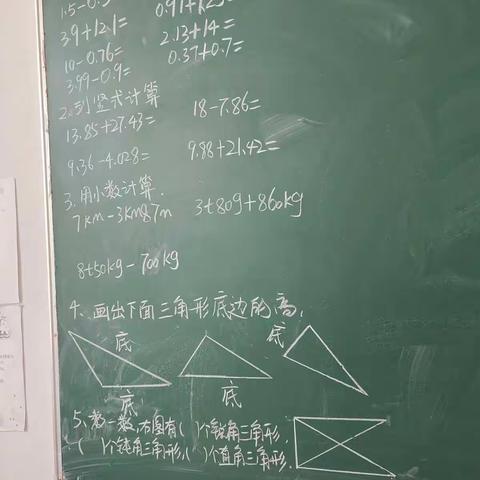 1.5-0.5=
0.91+1.25=
3.9+12.1=
2.13+14=
10-0.76=
0.37+0.7=
3.99-0.9=
2.列竖式计算
13.85+27.43=
18-7.86=
9.36-4.028=
9.88+21.42=
3.用小数计算.
7km-3km87m
3t80g+860kg
8t50kg-700kg
4、画出下面三角形底边的高,
底
底
底
底
5、数一数,右图有( )个锐角三角形,
( )个钝角三角形,( )个直角三角形.